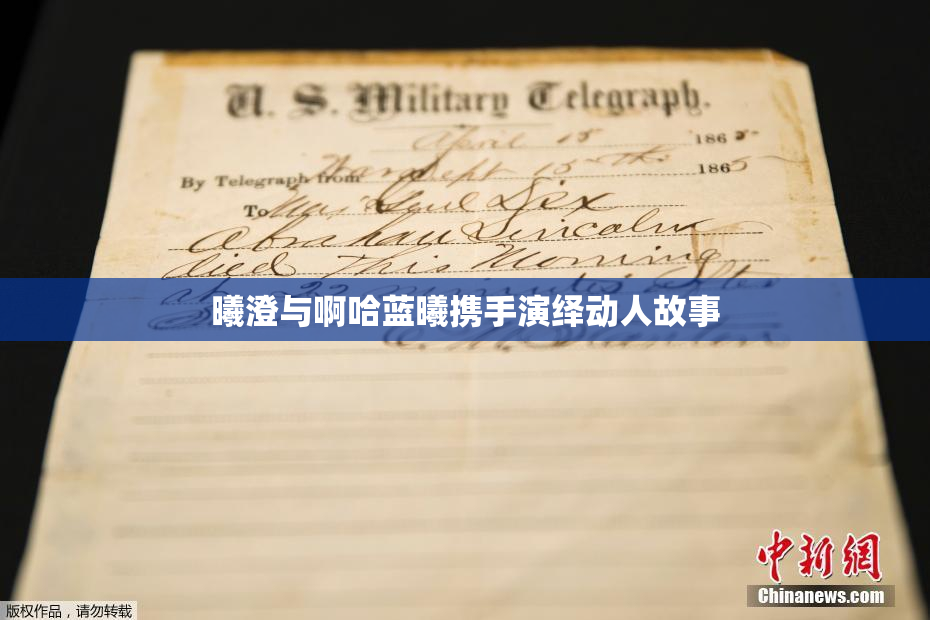 U. S. Military Telegraph.
April 15 1865
By Telegraph from War Dept 15th 1865
To Maj Genl Dix
Abraham Lincoln
died This Morning
at 22 minutes after
曦澄与啊哈蓝曦携手演绎动人故事
E. M. Stanton
中新网
Chinanews.com
版权作品，请勿转载